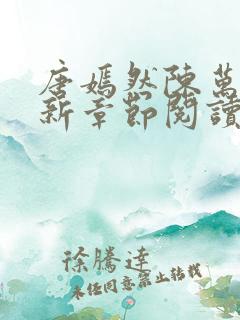 唐嫣然陳萬
新章節閱讀
徐騰達
未经同意禁止转载